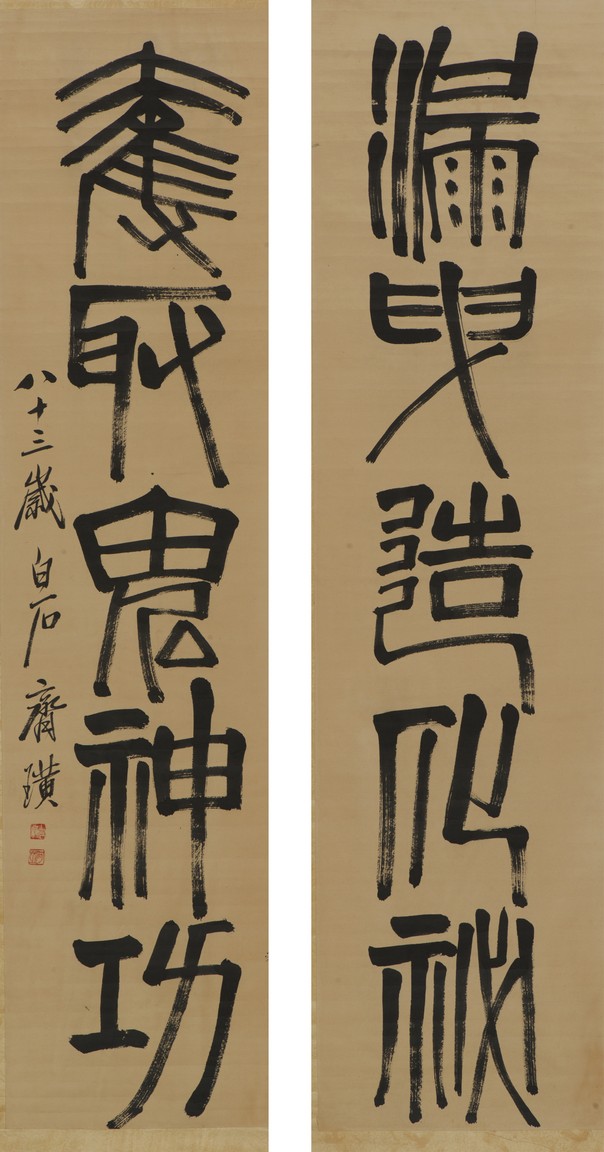 漏曳造化秘
奪取鬼神功
八十三歲白石齊璜